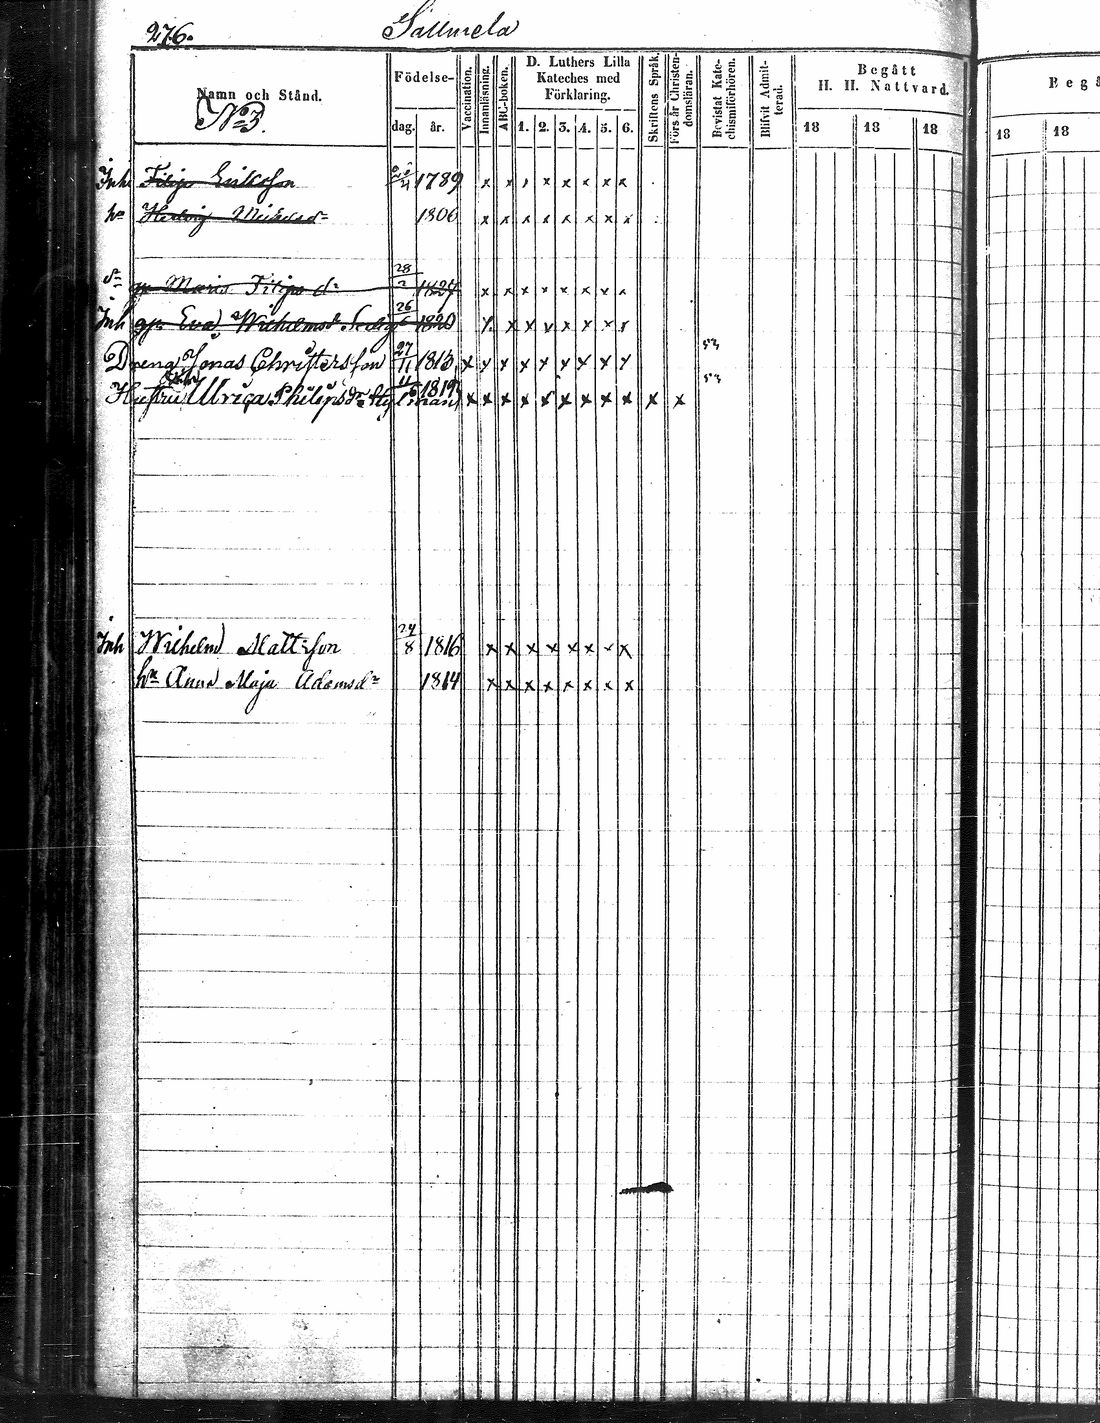 276. Sallmela
Namn och Stånd.
No 3.
Födelse-
dag. år.
Vaccination.
Innanläsning.
ABC-boken.
D. Luthers Lilla
Kateches med
Förklaring.
1. 2. 3. 4. 5. 6.
Skriftens Språk.
Förs. år Christen-
domsläran.
Bevistat Kate-
chismiförhören.
Blifvit Admit-
terad.
Begått
H. H. Nattvard.
18 18 18
Begå
18 18
Inh Filip Eriksson 1789 x x x x x x x
hu 1806 x x x x x x x x
Maria Filips dr 28/2 1827 x x x x x x x x
Inh Eva Wilhelmsdr 26 1820 x x x x x x x x
Dreng Jonas Christersson 27/11 1813 x x x x x x x x x 53
Hustru Ulrica Philipsdr 11/6 1819 x x x x x x x x x x x 53
Inh Wilhelm Mattsson 24/8 1816 x x x x x x x x
hu Anna Maja Adamsdr 1814 x x x x x x x x